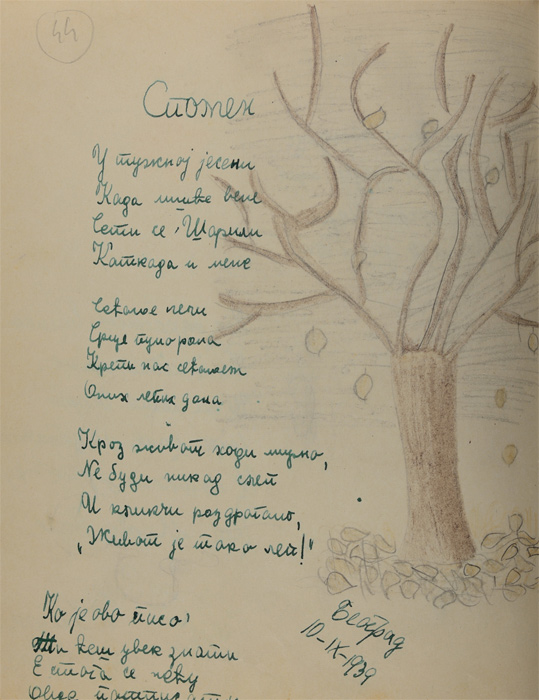 44
Спомен
У тужној јесени
Када вене
Сети се, Шарили
Каткада и мене
Срце пуно рана
Крепи нас
Оних летњих дана
Кроз живот ходи мирно,
Не буди никад сет
И кликни раздрагано,
„Живот је тако леп!"
Ко је ово писо'
Ти ћеш увек знати
Е стога се нећу
Овде потписати
Београд
10-IX-1939